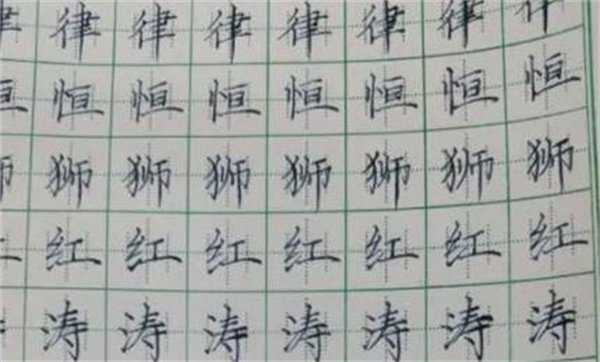 律律律律律律律律
恒恒恒恒恒恒恒恒
狮狮狮狮狮狮狮狮
红红红红红红红红
涛涛涛涛涛涛涛